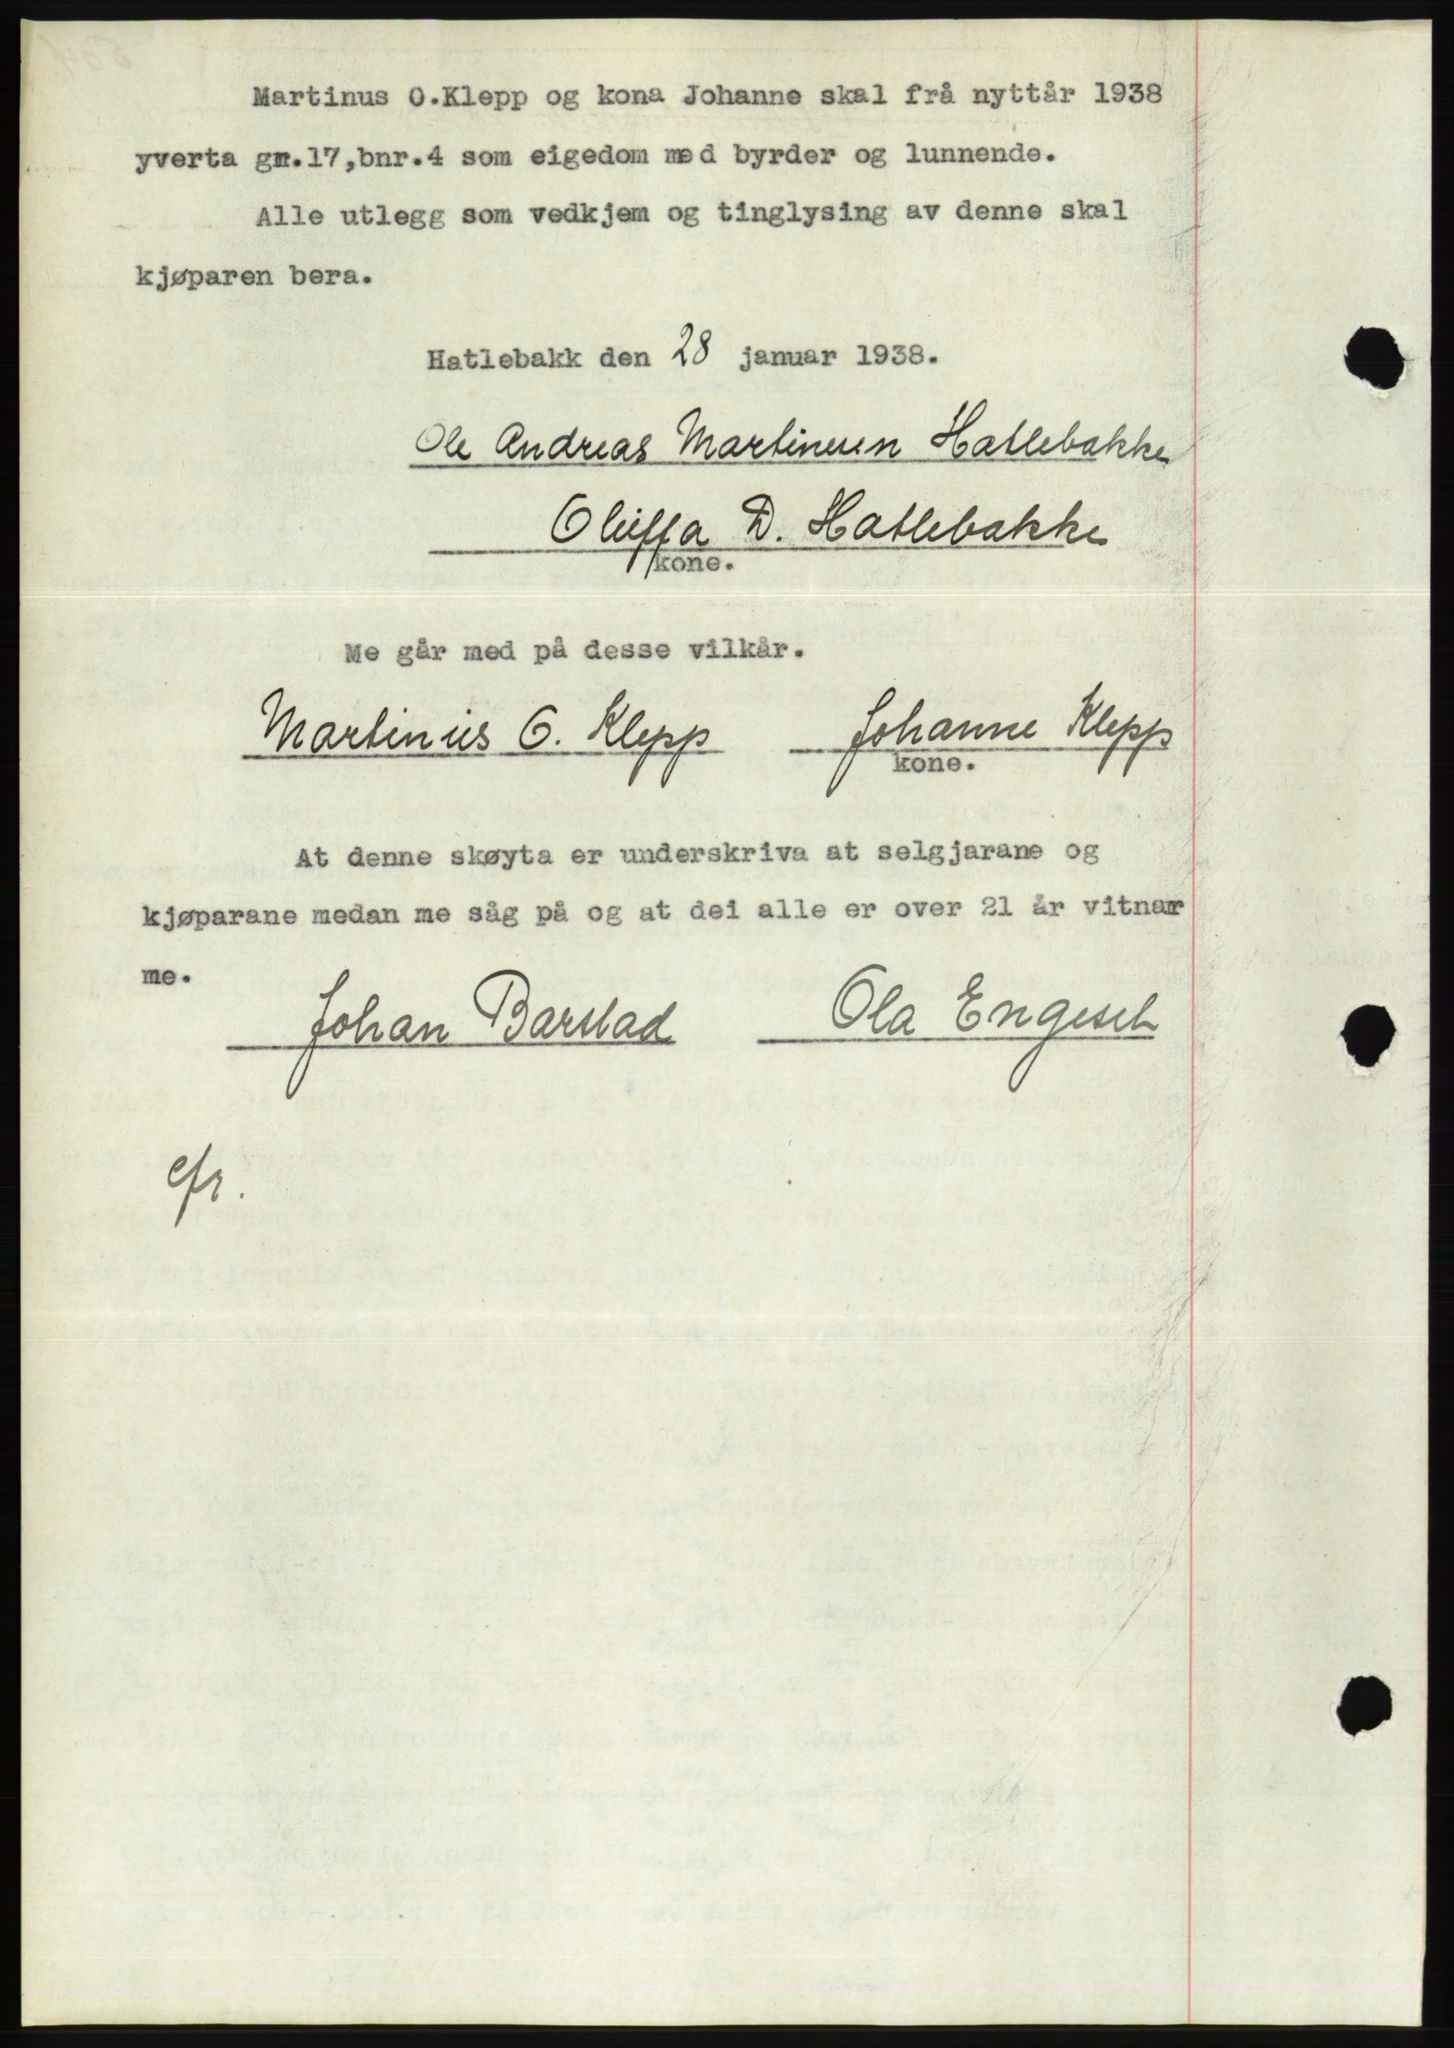 Martinus O.Klepp og kona Johanne skal frå nyttår 1938
yverta gn.17,bnr.4 som eigedom med byrder og lunnende.
Alle utlegg som vedkjem og tinglysing av denne skal
kjøparen bera.
Hatlebakk den 28 januar 1938.
Ole Andreas Martinusen Hatlebakke
Oluffa D. Hatlebakke
kone.
Me går med på desse vilkår.
Martinus O. Klepp Johanne Klepp
kone.
At denne skøyta er underskriva at selgjarane og
kjøparane medan me såg på og at dei alle er over 21 år vitnar
me.
Johan Barstad Ola Engeset
cfr.